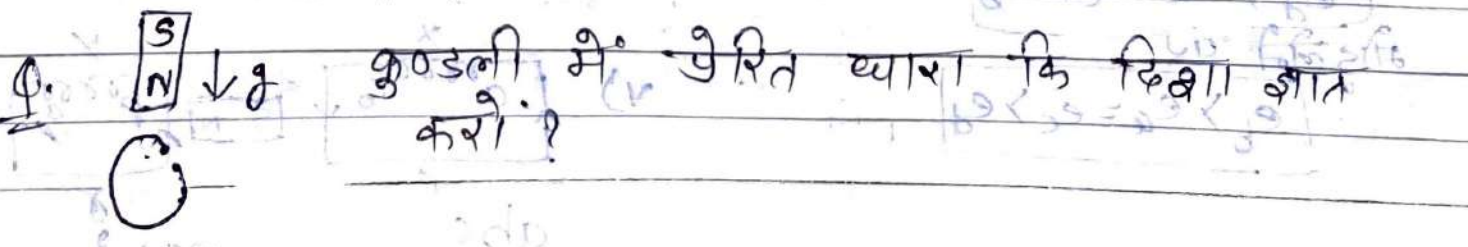 S
Q. N ↓g कुण्डली में प्रेरित धारा कि दिशा ज्ञात
करों ?